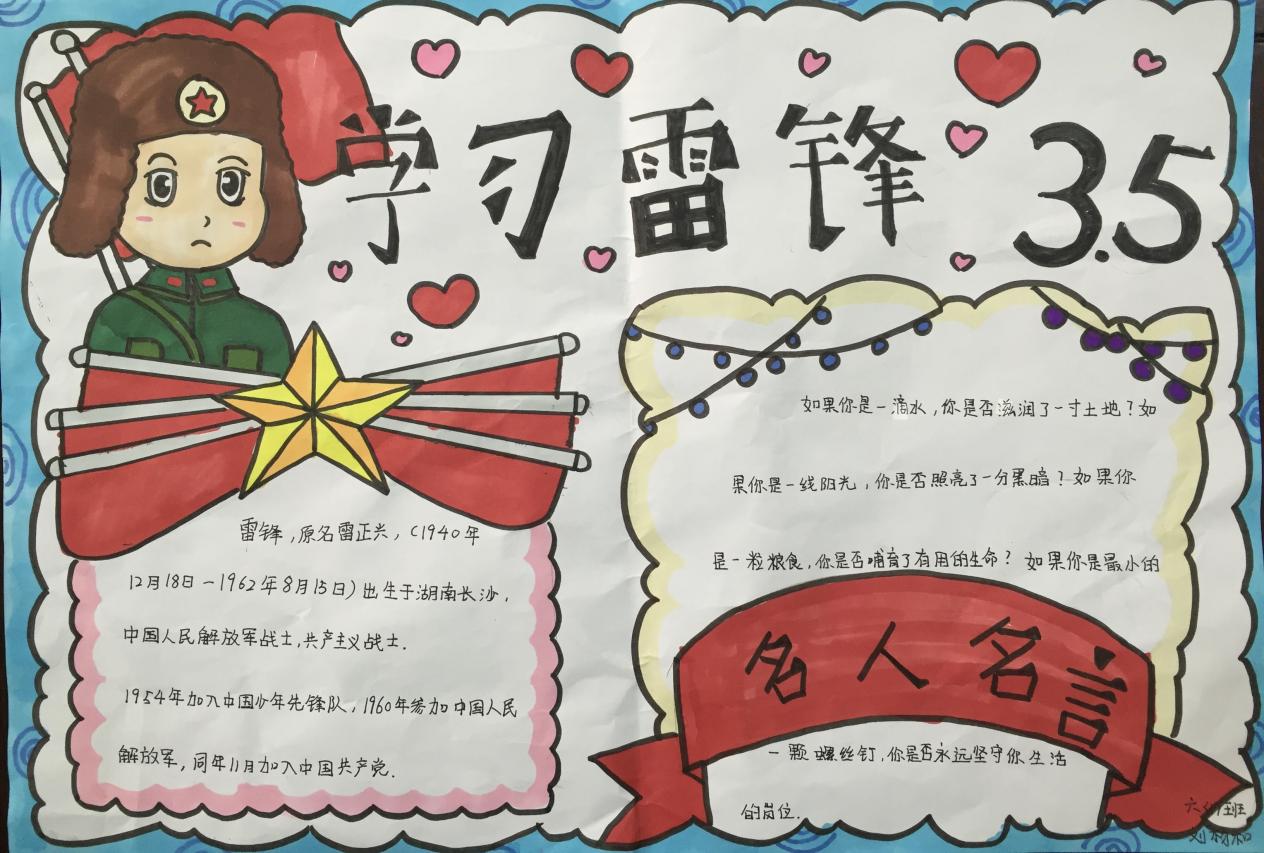 学习雷锋 3.5
雷锋，原名雷正兴，（1940年
12月18日－1962年8月15日）出生于湖南长沙，
中国人民解放军战士，共产主义战士．
1954年加入中国少年先锋队，1960年参加中国人民
解放军，同年11月加入中国共产党．
如果你是一滴水，你是否滋润了一寸土地？如
果你是一线阳光，你是否照亮了一分黑暗？如果你
是一粒粮食，你是否哺育了有用的生命？如果你是最小的
名人名言
一颗螺丝钉，你是否永远坚守你生活
的岗位．